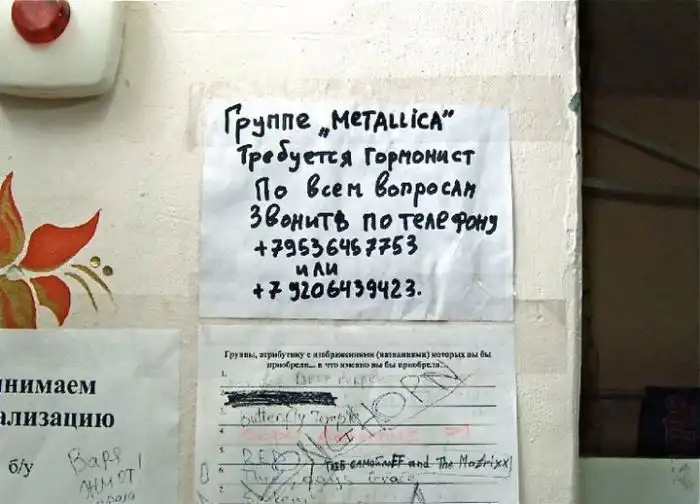 Группе „METALLICA"
Требуется Гормонист
По всем вопросам
Звонить по телефону
+79536457753
или
+79206439423.
Группы, атрибутику с изображениями (названиями) которых вы бы
приобрели... и что именно вы бы приобрели...
1.
2.
3. Butterfly Temple
4.
5. RED
ГЛЕБ САМОЙЛОFF and The Matrixx
6. Three days Grace
7.
KORN
нимаем
ализацию
б/у
Варя
ЖМОТ!